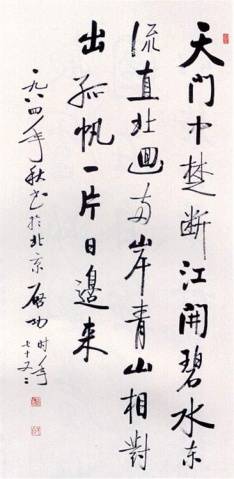 天门中楚断江開碧水东
流直北迴两岸青山相對
出孤帆一片日邊来
一九八四年秋书於北京 启功 时年七十又二